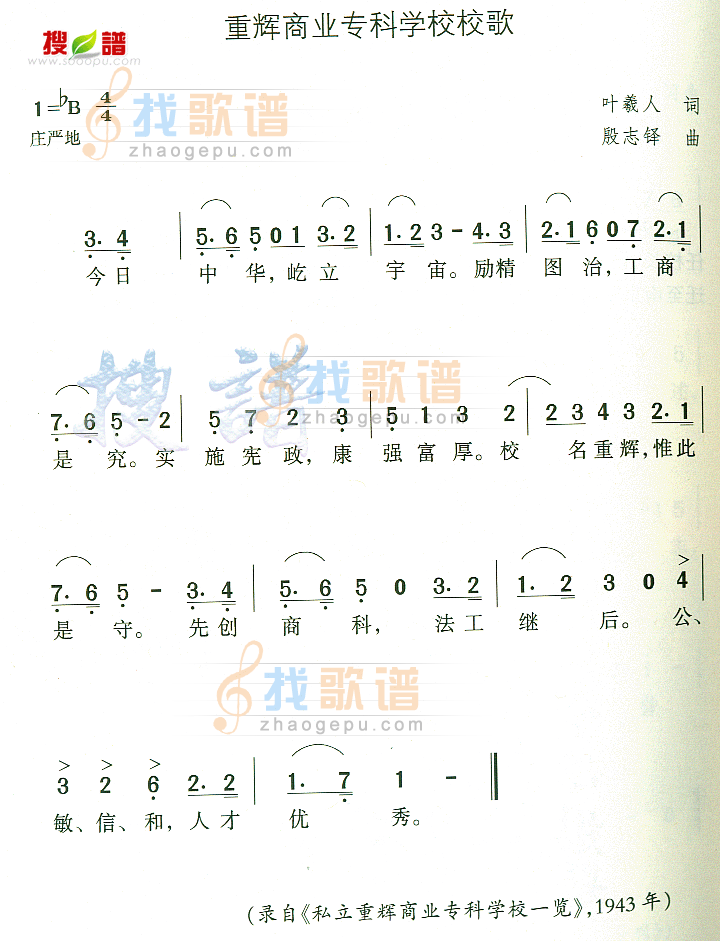 重辉商业专科学校校歌
搜谱
www.sooopu.com
1=♭B 4/4
叶羲人 词
庄严地
殷志铎 曲
找歌谱
zhaogepu.com
3. 4 | 5. 6 5 01 3. 2 | 1. 2 3 - 4. 3 | 2. 1 6 07 2. 1 |
今日 中 华,屹立 宇 宙。励精 图 治,工商
搜谱
找歌谱
zhaogepu.com
7. 6 5 - 2 | 5 7 2 3 | 5 1 3 2 | 2 3 4 3 2. 1 |
是 究。实 施宪政,康 强富厚。校 名重辉,惟此
7. 6 5 - 3. 4 | 5. 6 5 0 3. 2 | 1. 2 3 0 4 |
是 守。 先创 商 科, 法工 继 后。公、
找歌谱
zhaogepu.com
3 2 6 2. 2 | 1. 7 1 - ‖
敏、信、和,人才 优 秀。
(录自《私立重辉商业专科学校一览》,1943年)